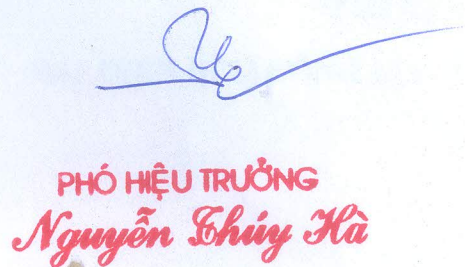 PHÓ HIỆU TRƯỞNG
Nguyễn Thúy Hà